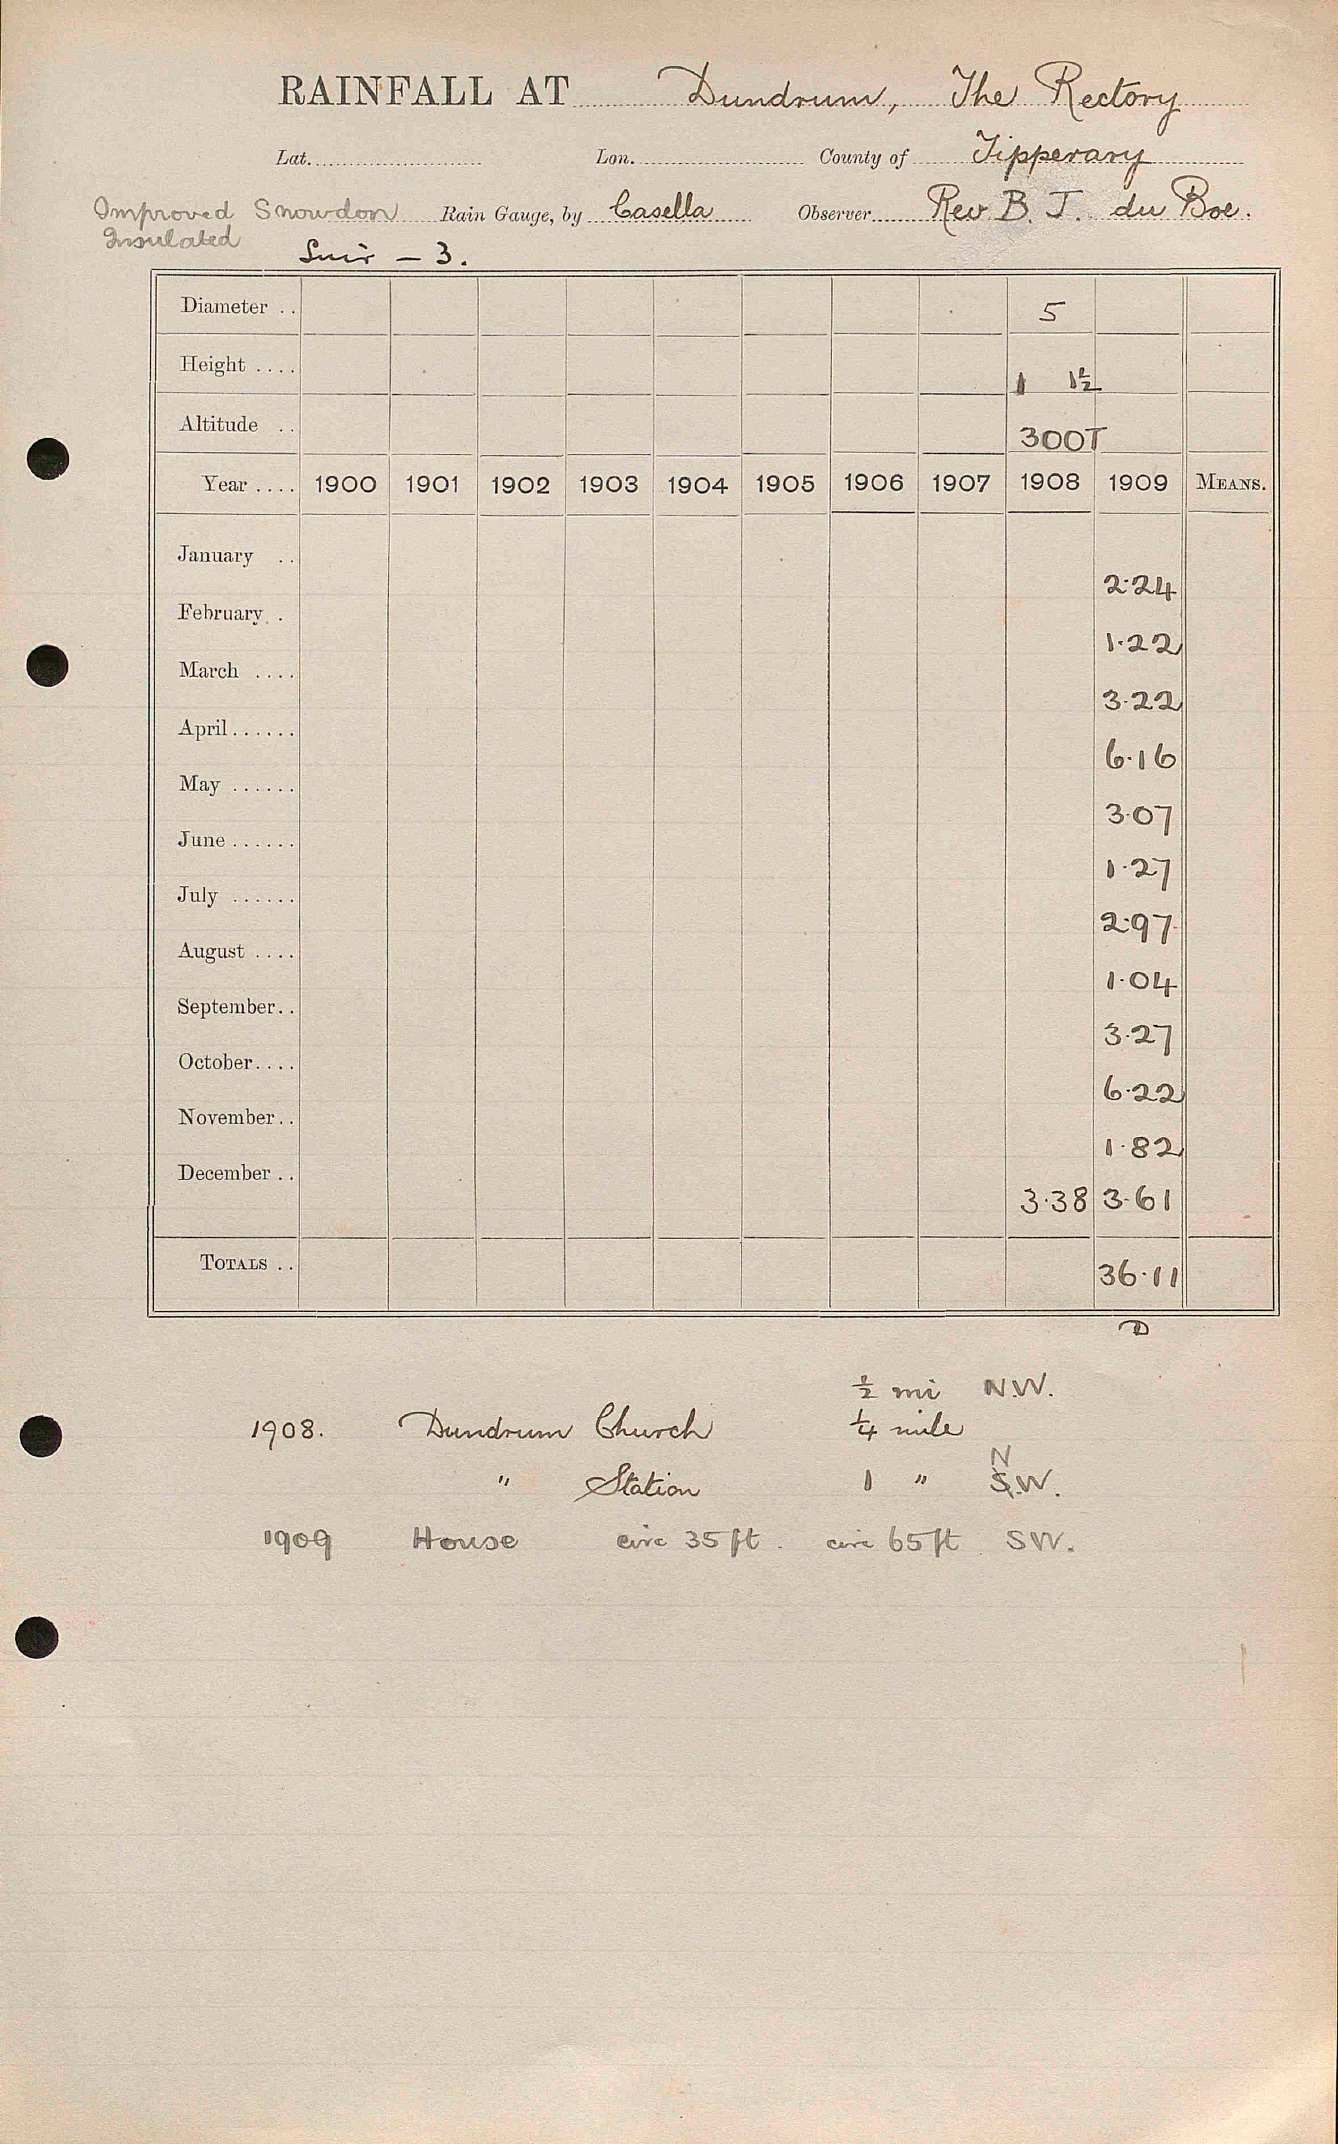 RAINFALL AT Dundrum, The Rectory
Lat. Lon. County of Tipperary
Improved Snowdon Rain Gauge, by Casella Observer Rev B. J. du Boe.
Insulated
Suir - 3.
Diameter .. 5
Height .... 1 1½
Altitude .. 300T
Year .... 1900 1901 1902 1903 1904 1905 1906 1907 1908 1909 MEANS.
January .. 2.24
February . 1.22
March .... 3.22
April...... 6.16
May ...... 3.07
June ...... 1.27
July ...... 2.97
August .... 1.04
September.. 3.27
October.... 6.22
November.. 1.82
December .. 3.38 3.61
TOTALS .. 36.11
D
½ mi N.W.
1908. Dundrum Church ¼ mile
N
" Station 1 " S.W.
1909 House circ 35 ft. circ 65 ft SW.